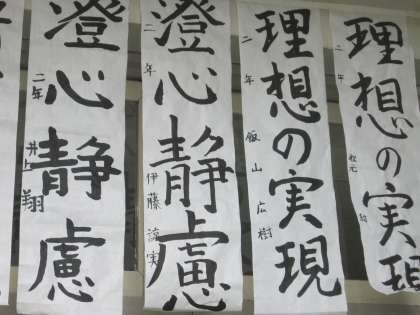 理想の実現
二年
理想の実現
二年 飯山広樹
澄心静慮
二年 伊藤諒実
澄心静慮
二年 井上翔